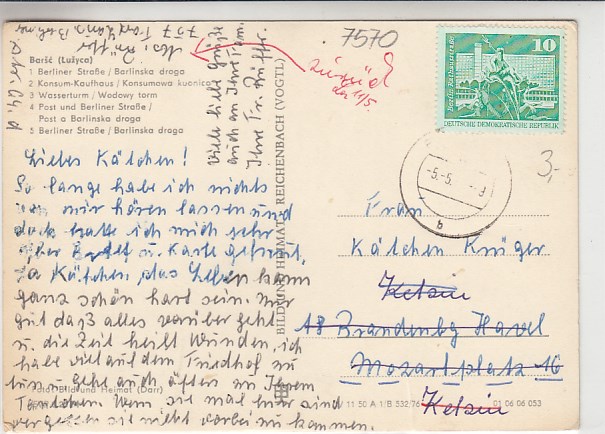 7570
Barść (Łużyca)
1 Berliner Straße / Barlinska droga
2 Konsum-Kaufhaus / Konsumowa kupnica
3 Wasserturm / Wodowy torm
4 Post und Berliner Straße /
Post a Barlinska droga
5 Berliner Straße / Barlinska droga
Viele liebe Grüße
auch an Ihre Fam.
Ihre Fr.
zurück
11/5.
10
Berlin, Rathausstraße
DEUTSCHE DEMOKRATISCHE REPUBLIK
-5.-5.
b
3,-
Liebes Kätchen!
So lange habe ich nichts
von mir hören lassen und
doch hatte ich mich sehr
über u. Karte gefreut,
Ja Kätchen das Leben kann
ganz schön hart sein. Nur
gut daß alles vorüber geht
u. die Zeit heilt Wunden, ich
habe viel auf dem Friedhof zu
tun u. gehe auch öfter zu Ihrem
Tantchen. Wenn sie mal hier sind
vergessen sie nicht vorbei zu kommen.
BILD UND HEIMAT REICHENBACH (VOGTL)
Frau
Kätchen Krüger
Ketzin
18 Brandenbg Havel
Mozartplatz 16
Ketzin
Foto: Bild und Heimat (Darr)
11 50 A 1/B 532/76
01 06 06 053